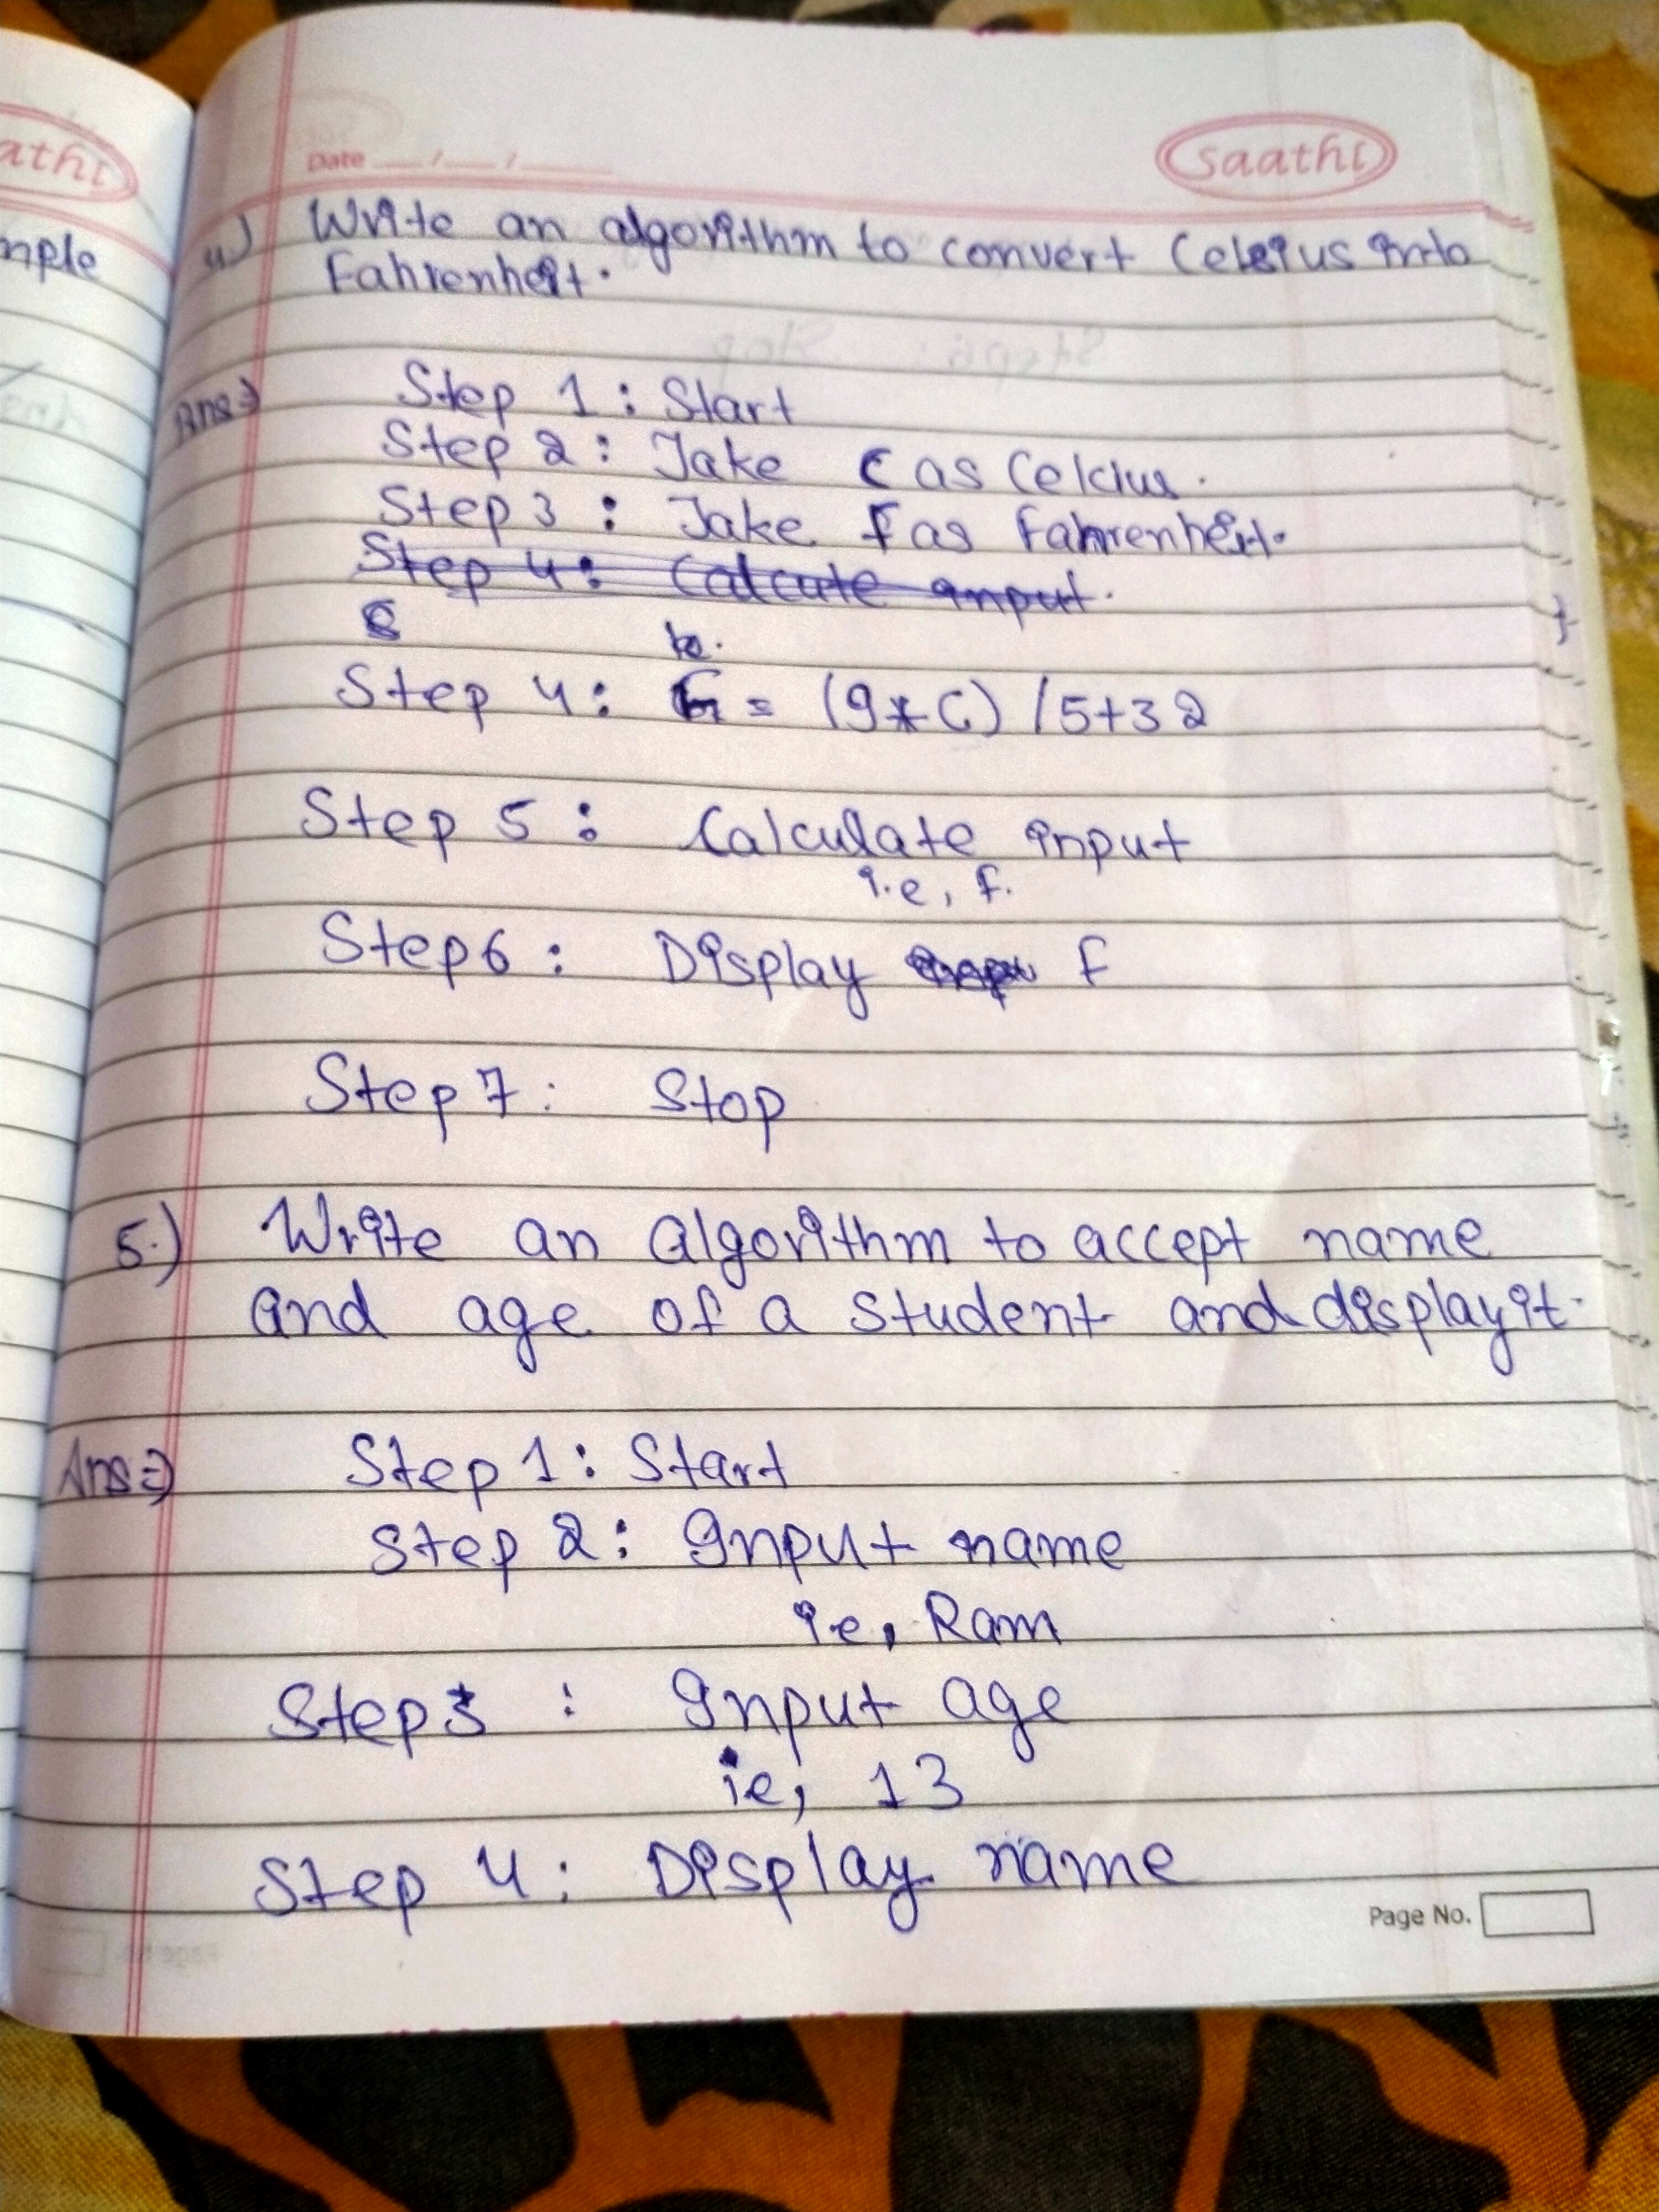 athi
Date __/__/____
saathi
mple
4) Write an algorithm to convert Celsius into
Fahrenheit.
Ans⇒ Step 1 : Start
Step 2 : Take C as Celcius.
Step 3 : Take F as Fahrenheit.
Step 4 : Calcute input.
Step 4 : = (9*C) /5+32
Step 5 : Calculate input
i.e, F.
Step 6 : Display F
Step 7 : Stop
5.) Write an Algorithm to accept name
and age of a student and display it.
Ans⇒ Step 1 : Start
Step 2 : Input name
i.e, Ram
Step 3 : Input age
ie, 13
Step 4 : Display name
Page No.